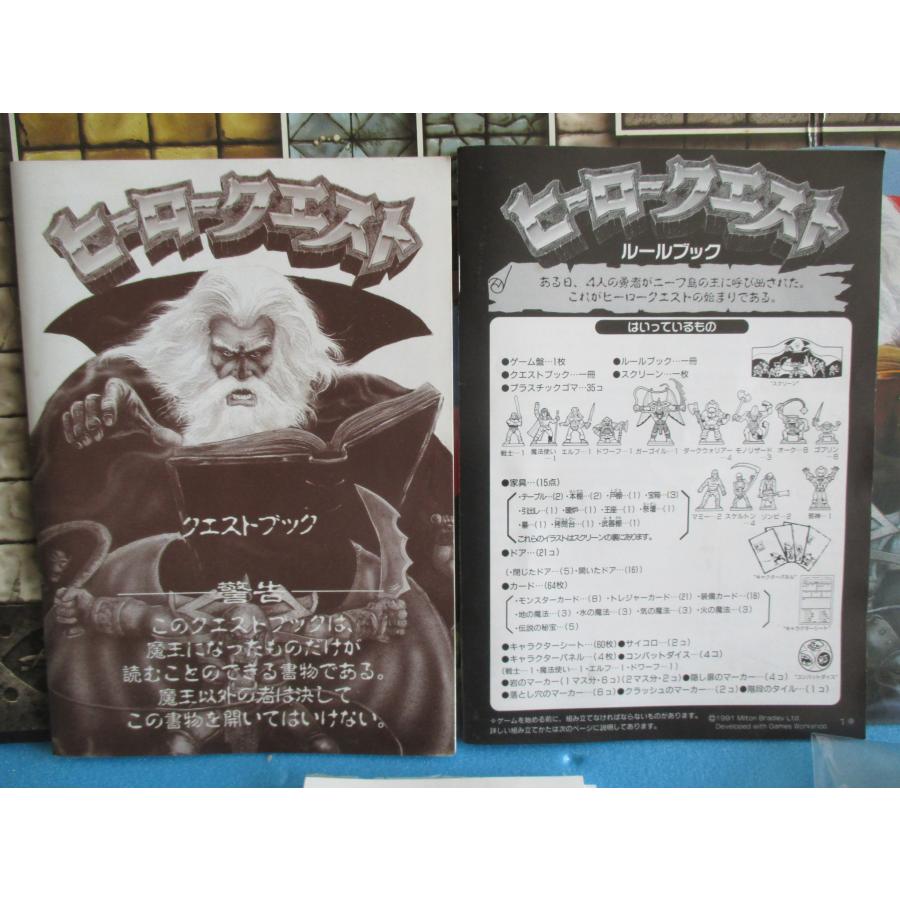 ヒーロークエスト
クエストブック
警告
このクエストブックは、
魔王になったものだけが
読むことのできる書物である。
魔王以外の者は決して
この書物を開いてはいけない。
ヒーロークエスト
ルールブック
ある日、4人の勇者が二ーフ島の主に呼び出された。
これがヒーロークエストの始まりである。
はいっているもの
●ゲーム盤…1枚 ●ルールブック…一冊
●クエストブック…一冊 ●スクリーン…一枚
●プラスチックゴマ…35コ
"スクリーン"
戦士…1 魔法使い…1 エルフ…1 ドワーフ…1 ガーゴイル…1 ダークウォリアー…4 モノリザード…3 オーク…8 ゴブリン…8
●家具…(15点)
・テーブル…(2) ・本棚…(2) ・戸棚…(1) ・宝箱…(3)
・引出し…(1) ・暖炉…(1) ・王座…(1) ・祭壇…(1)
・墓…(1) ・拷問台…(1) ・武器棚…(1)
これらのイラストはスクリーンの裏に絵ります。
マミー…2 スケルトン…4 ゾンビ…2 邪神…1
●ドア…(21コ)
(・閉じたドア…(5)・開いたドア…(16))
"キャラクターパネル"
●カード…(64枚)
・モンスターカード…(8) ・トレジャーカード…(21) ・装備カード…(18)
・地の魔法…(3) ・水の魔法…(3) ・気の魔法…(3) ・火の魔法…(3)
・伝説の秘宝…(5)
"キャラクターシート"
●キャラクターシート…(60枚) ●サイコロ…(2コ)
●キャラクターパネル…(4枚) ●コンバットダイス…(4コ)
(戦士…1・魔法使い…1・エルフ…1・ドワーフ…1)
"コンバットダイス"
●岩のマーカー(1マス分・6コ)(2マス分・2コ) ●隠し扉のマーカー…(4コ)
●落とし穴のマーカー…(6コ) ●クラッシュのマーカー…(2コ) ●階段のタイル…(1コ)
＊ゲームを始める前に、組み立てなければならないものがあります。
詳しい組み立てかたは次のページに説明してあります。
©1991 Milton Bradley Ltd.
Developed with Games Workshop.
1